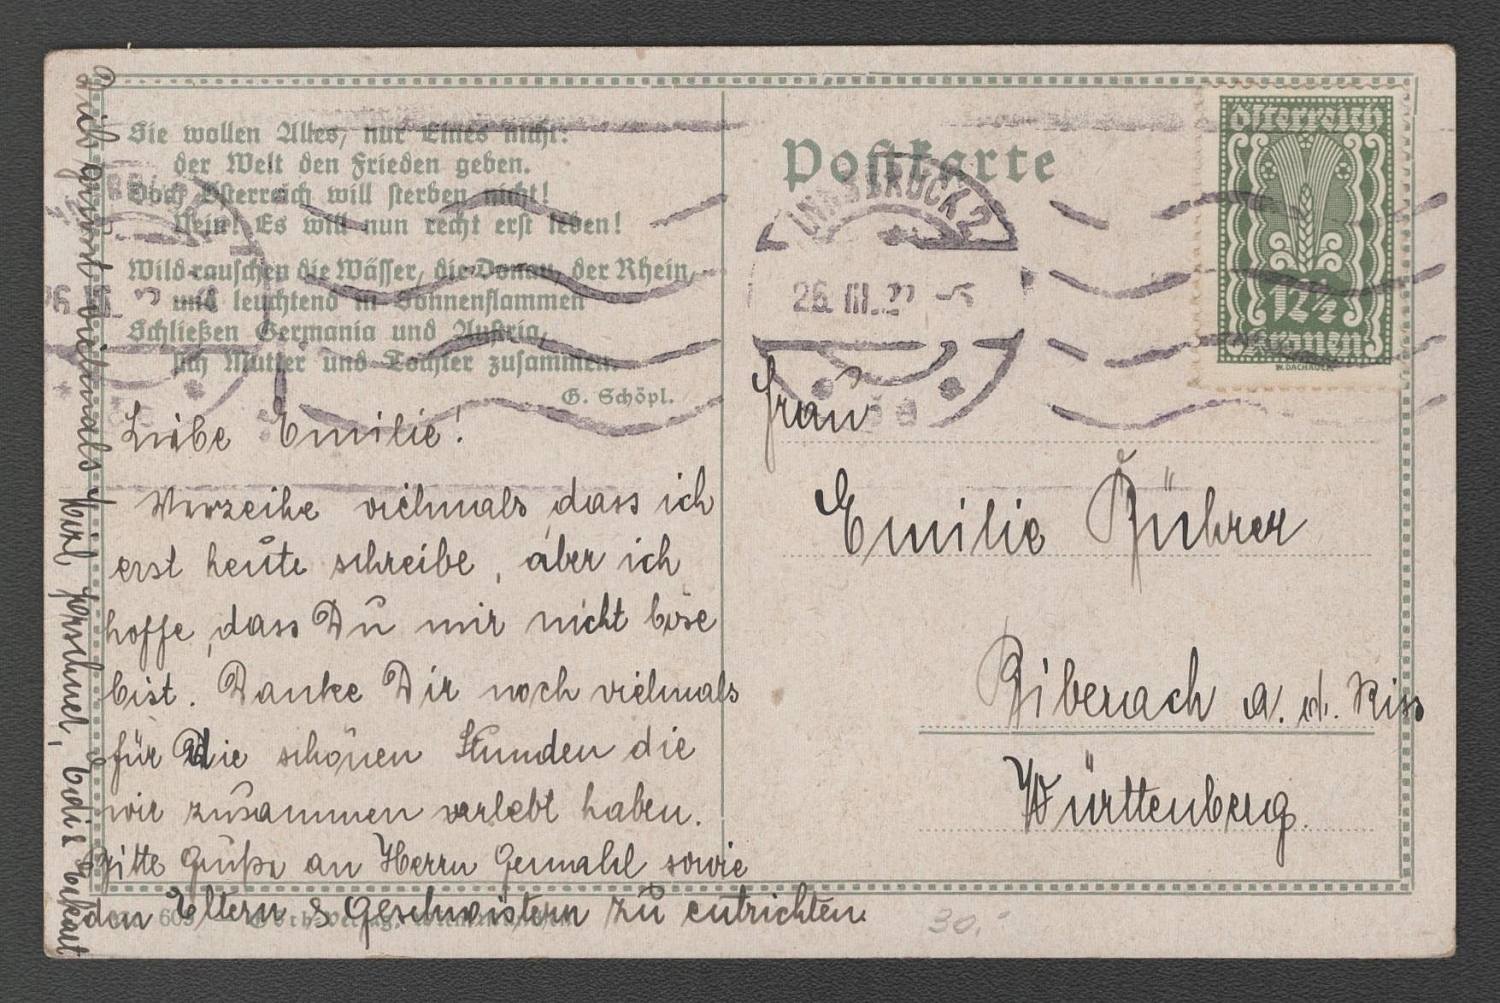 Sie wollen Alles, nur Eines nicht:
der Welt den Frieden geben.
Doch Österreich will sterben nicht!
Nein! Es will nun recht erst leben!
Wild rauschen die Wässer, die Donau, der Rhein,
und leuchtend in Sonnenflammen
Schließen Germania und Austria,
sich Mutter und Tochter zusammen.
G. Schöpl.
Liebe Emilie!
Verzeihe vielmals, dass ich
erst heute schreibe, aber ich
hoffe, dass Du mir nicht böse
bist. Danke Dir noch vielmals
für die schönen Stunden die
wir zusammen verlebt haben.
Bitte Grüße an Herrn Gemahl sowie
den Eltern & Geschwistern zu entrichten.
Dich grüsst vielmals
Karl
609
Postkarte
INNSBRUCK 2
26. III. 22 -6
Österreich
12½
Kronen
W. DACHAUER
Frau
Emilie Bührer
Biberach a. d. Riss
Württemberg.
30.-